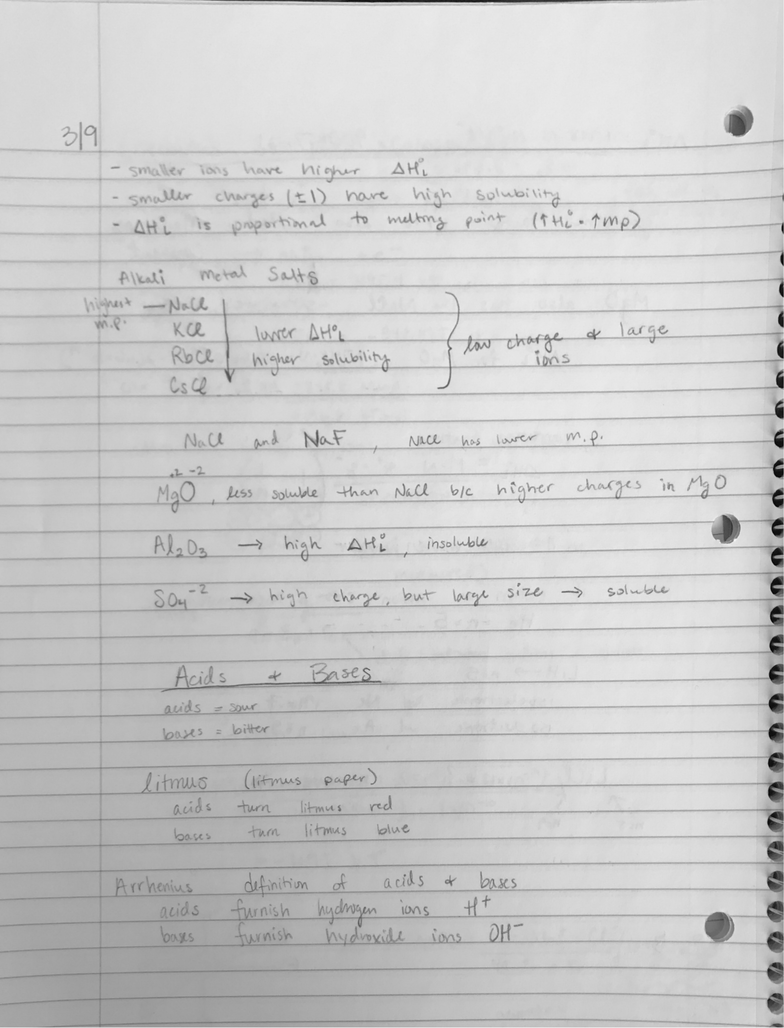 3/9
- smaller ions have higher ΔH°L
- smaller charges (±1) have high solubility
- ΔH°L is proportional to melting point (↑H°L · ↑mp)
Alkali metal Salts
highest m.p. — NaCl
KCl
RbCl
CsCl
lower ΔH°L
higher solubility
low charge & large
ions
NaCl and NaF, NaCl has lower m.p.
+2 -2
MgO, less soluble than NaCl b/c higher charges in MgO
Al₂O₃ → high ΔH°L, insoluble
SO₄⁻² → high charge, but large size → soluble
Acids + Bases
acids = sour
bases = bitter
litmus (litmus paper)
acids turn litmus red
bases turn litmus blue
Arrhenius definition of acids & bases
acids furnish hydrogen ions H⁺
bases furnish hydroxide ions OH⁻